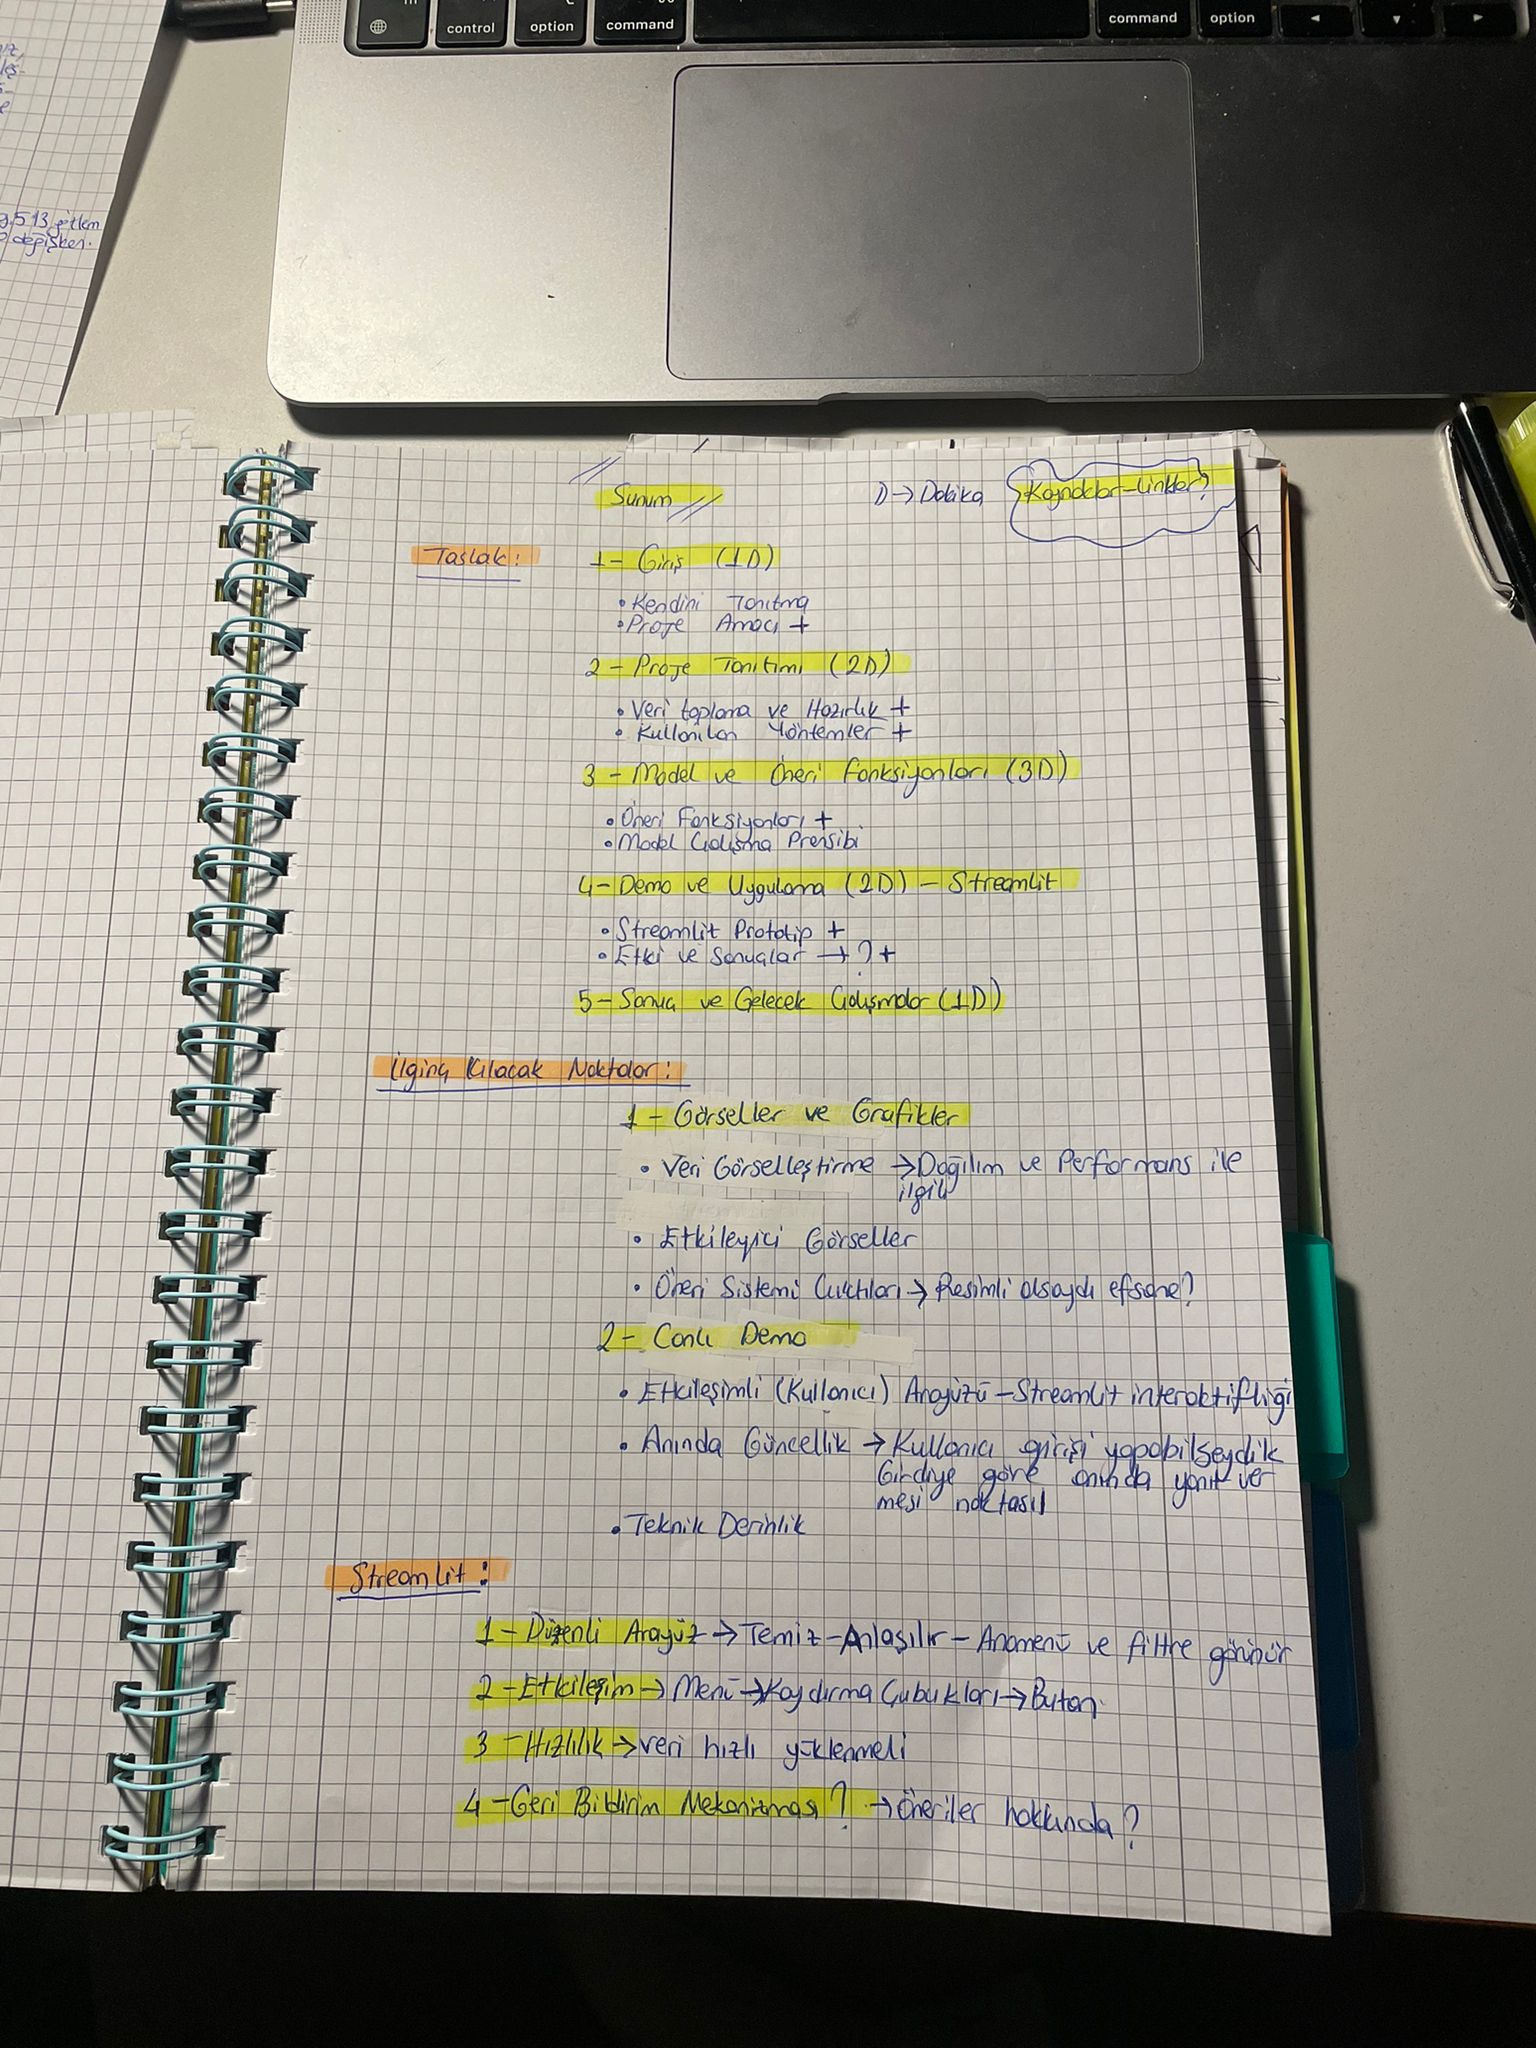 control
option
command
command
option
g513 
değişken.
Sunum
D → Dakika
Kaynaklar-Linkler?
Taslak:
1- Giriş (1D)
• Kendini Tanıtma
• Proje Amacı +
2- Proje Tanıtımı (2D)
• Veri toplama ve Hazırlık +
• Kullanılan Yöntemler +
3- Model ve Öneri Fonksiyonları (3D)
• Öneri Fonksiyonları +
• Model Çalışma Prensibi
4- Demo ve Uygulama (2D) - Streamlit
• Streamlit Prototip +
• Etki ve Sonuçlar → ? +
5- Sonuç ve Gelecek Çalışmalar (1D)
İlginç Kılacak Noktalar:
1- Görseller ve Grafikler
• Veri Görselleştirme → Dağılım ve Performans ile
ilgili
• Etkileyici Görseller
• Öneri Sistemi Çıktıları → Resimli olsaydı efsane?
2- Canlı Demo
• Etkileşimli (Kullanıcı) Arayüzü - Streamlit interaktifliği
• Anında Güncellik → Kullanıcı girişi yapabilseydik
Girdiye göre anında yanıt ver
mesi noktası!
• Teknik Derinlik
Streamlit:
1- Düzenli Arayüz → Temiz - Anlaşılır - Anamenü ve filtre görünür
2- Etkileşim → Menü → Kaydırma Çubukları → Buton.
3- Hızlılık → veri hızlı yüklenmeli
4- Geri Bildirim Mekanizması? → Öneriler hakkında?